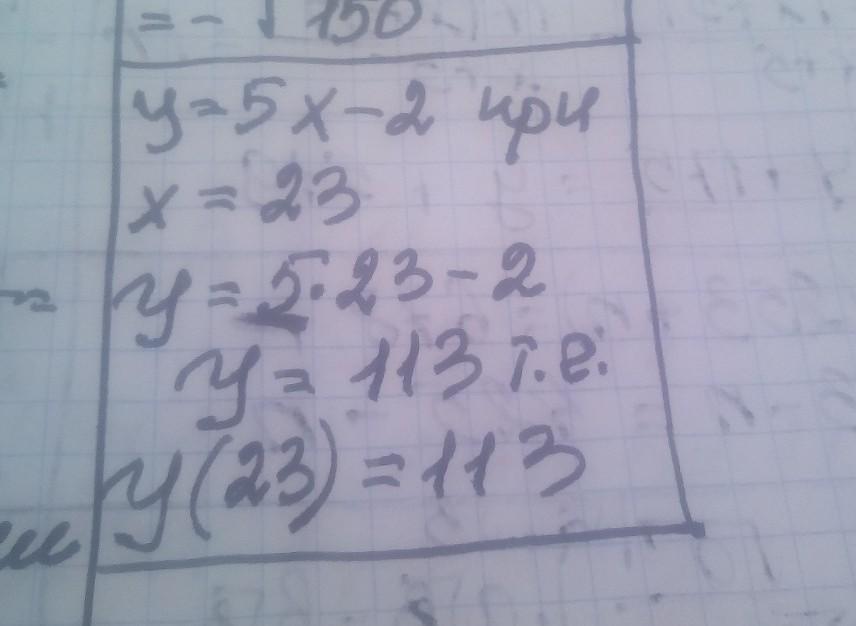 = - √150
y = 5x - 2 при
x = 23
y = 5·23 - 2
y = 113 т.е.
y(23) = 113